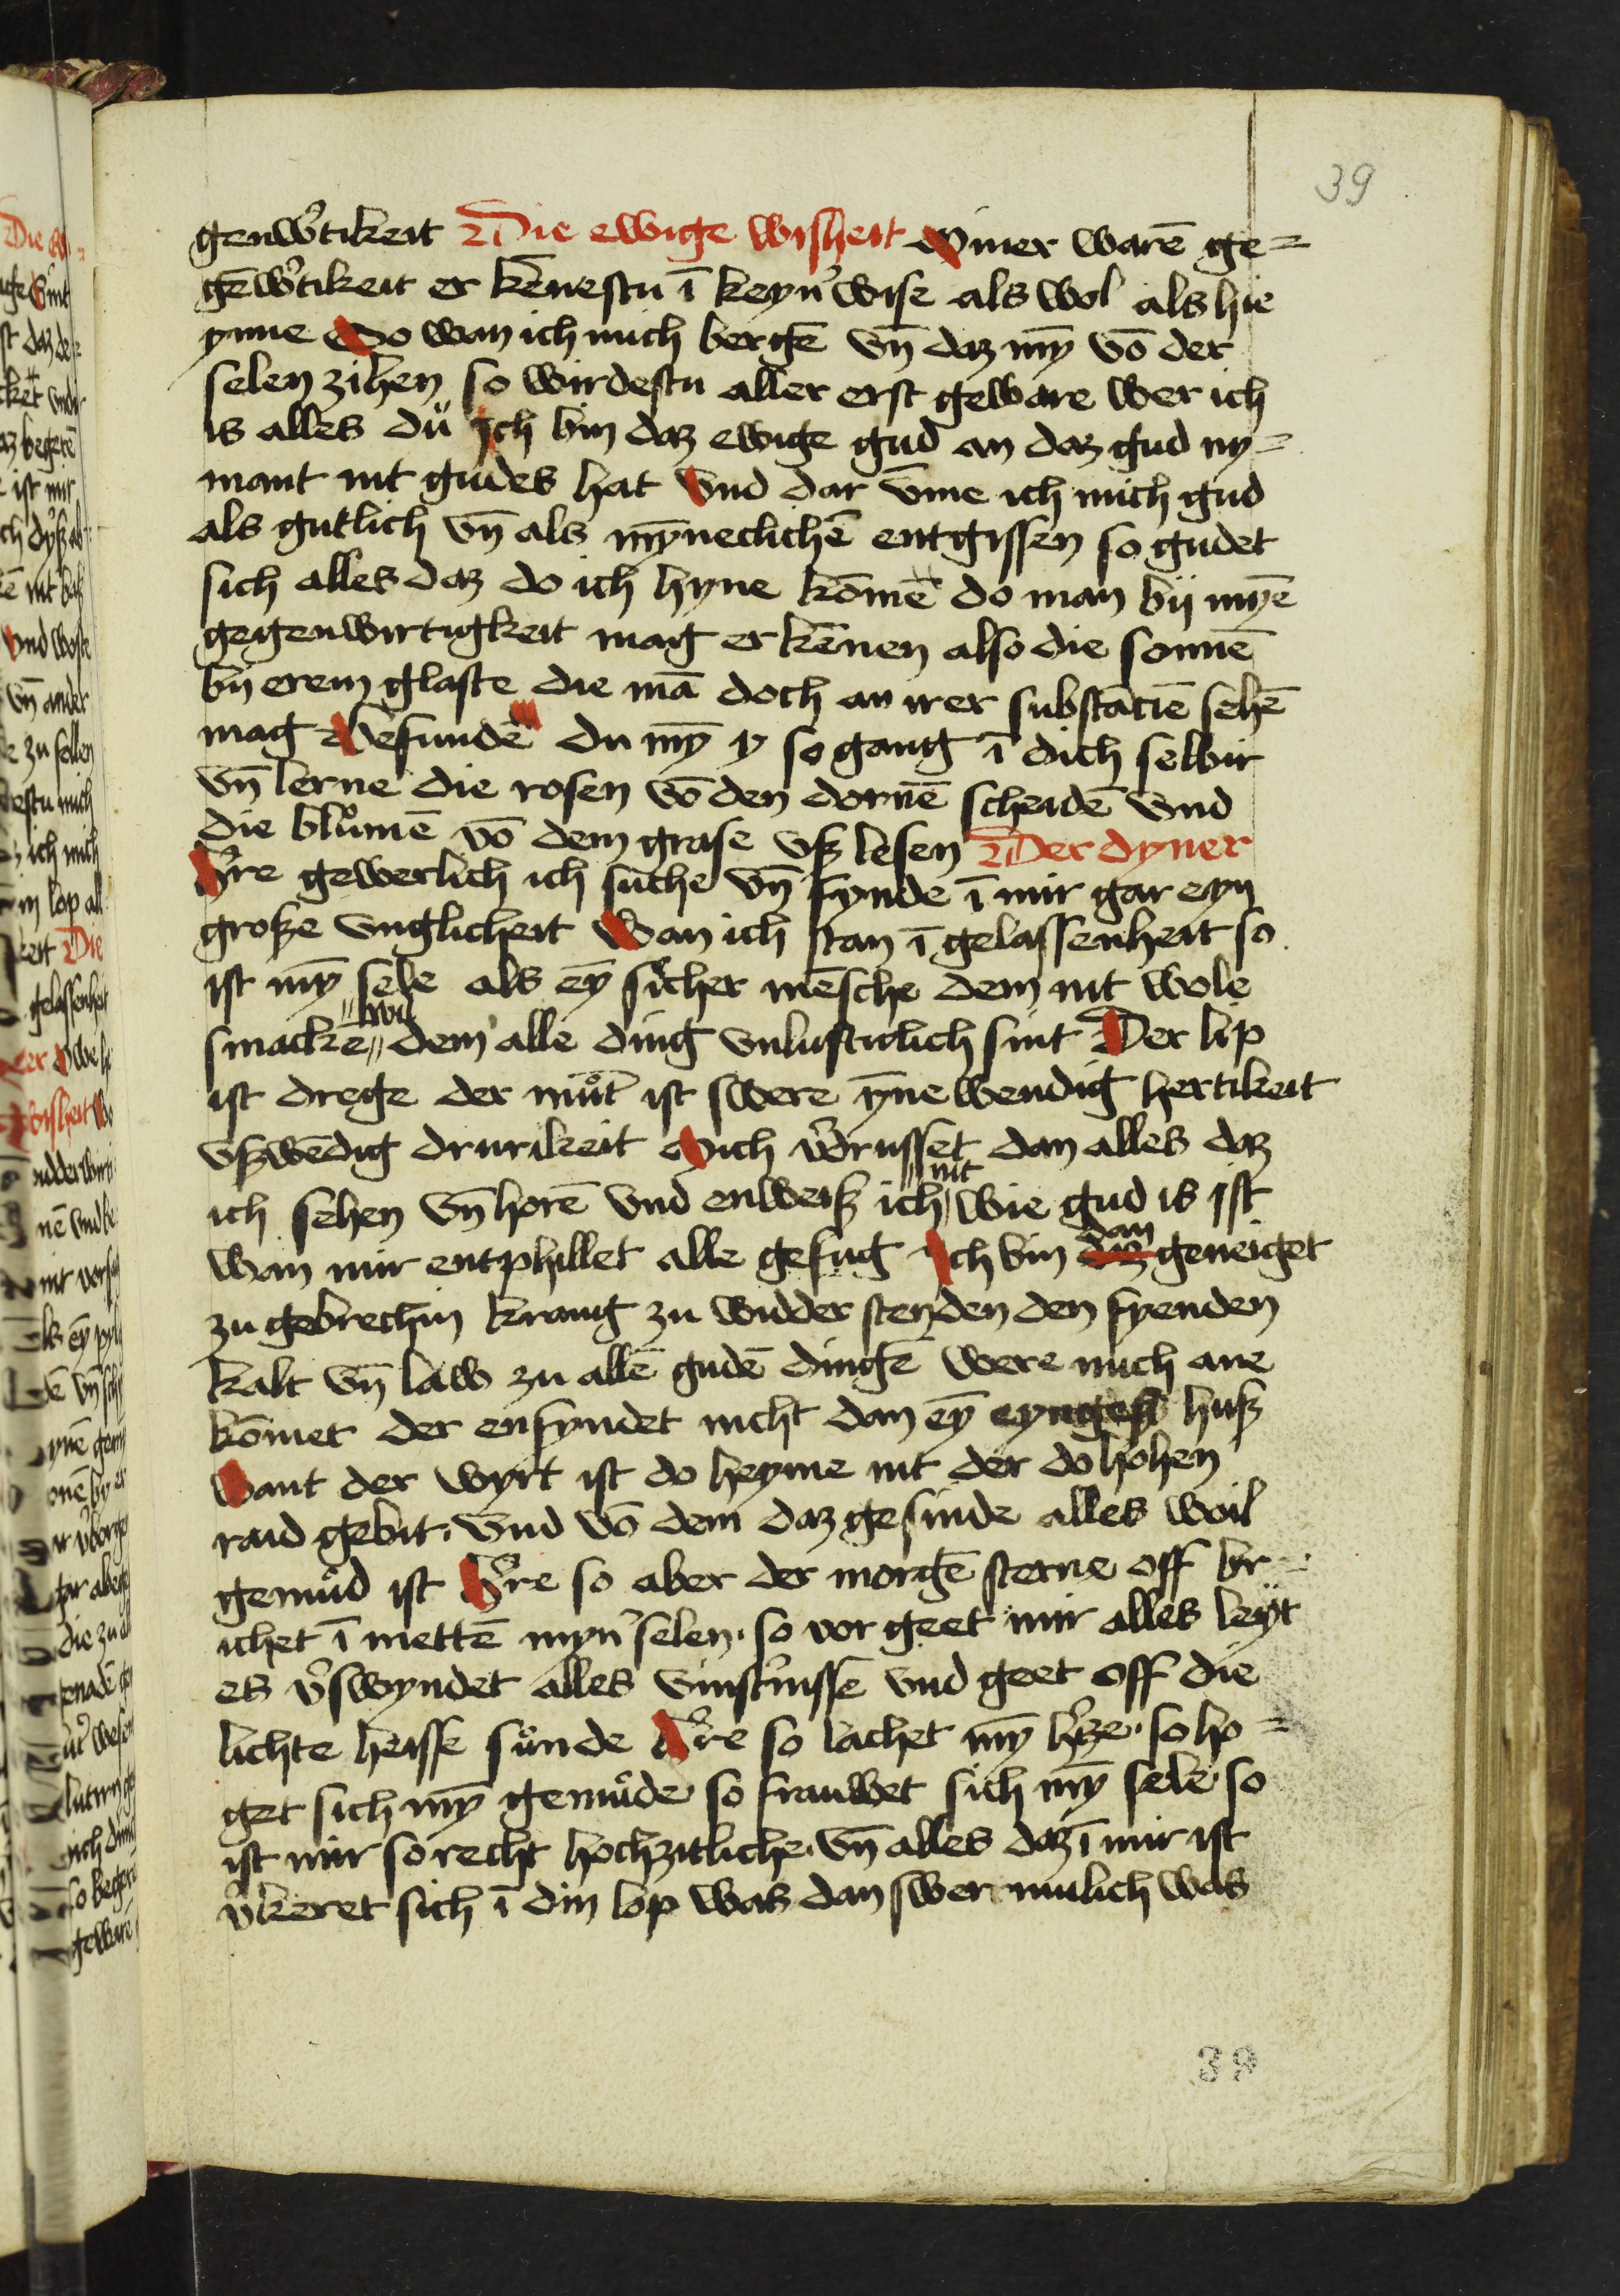 39
genwͬtikeit Die ewige wisheit Miner warē ge=
gēwͬtikeit er kēnestu ī keynͬ wise als wol als hie
ynne So wan ich mich bergē vn̄ daz my̅ vō der
selen zihen so wirdestu aller erst geware wer ich
is alles dü Ich bin daz ewige gud an daz gud ny=
mant nit gudes hat Vnd dar vm̄e ich mich gud
als gutlich vn̄ als my̅neclichē entgissen so gudet
sich alles daz do ich hyne kōmē do man bij myē
geigenwirtigkeit mag er kēnen also die sonnē
bij erem glaste die mā doch an irer substāciē sehē
mag Befundē du my̅ y so gang ī dich selbir
vn̄ lerne die rosen vō den dornē scheidē vnd
die blůmē vō dem grase vß lesen Der dyner
Hͬre gewerlich ich suche vn̄ fynde ī mir gar eyn
große vnglicheit Wan ich stan ī gelassenheit so
ist my̅ sele als ey̅ sicher mēsche dem nit wole
smackē dem alle ding vnlustirlich sint Der lip
ist drege der můt ist swere y̅ne wendig hertikeit
vßwēdig drurikeit Mich vͬdrusset dan alles daz
nit
ich sehen vn̄ horē vnd enweiß ich wie gud is ist
dan
wan mir entphillet alle gefug Ich bin daz geneiget
zu gebrechin krang zu widder stenden den fyenden
kalt vn̄ law zu allē gudē dingē were mich ane
kōmet der enfyndet nicht dan ey̅ huß
Want der wyrt ist do heyme nit der do hohen
raid gebit. Vnd vō dem daz gesinde alles woil
gemůd ist Hͬre so aber der morgē sterne off br=
ichet ī mettē mynͬ selen. so vor geet mir alles leyt
es vͬswyndet alles vinstͬnissē vnd geet off die
lichte heisse sůnde Hͬre so lachet my̅ hͬze. so ho=
get sich my̅ gemůde so frauwet sich my̅ sele so
ist mir so recht hochzitliche. vn̄ alles daz ī mir ist
vͬkeret sich ī din lop was dan swermulich was
39